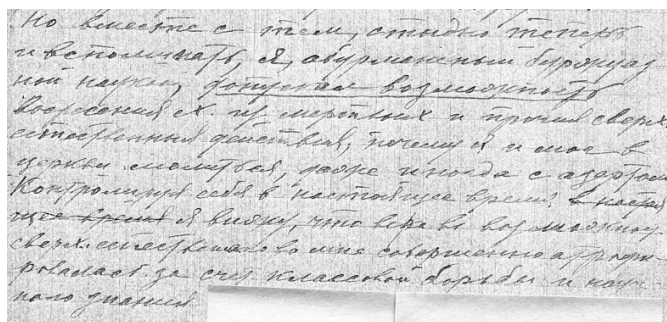 Но вместе с тем, стыдно теперь
и вспоминать, я, обурманеный буржуаз
ной наукой, допускал возможность
воскресения Х. из мертвых и прочия сверх
естественныя действия, почему я и мог в
церкви молиться, даже иногда с азартом
Контролируя себя в настоящее время, в настоя
щее время я вижу, что вера во возможност
сверхъестественнаго во мне совершенно атрофи
ровалась за счет классовой борьбы и науч-
ного знания